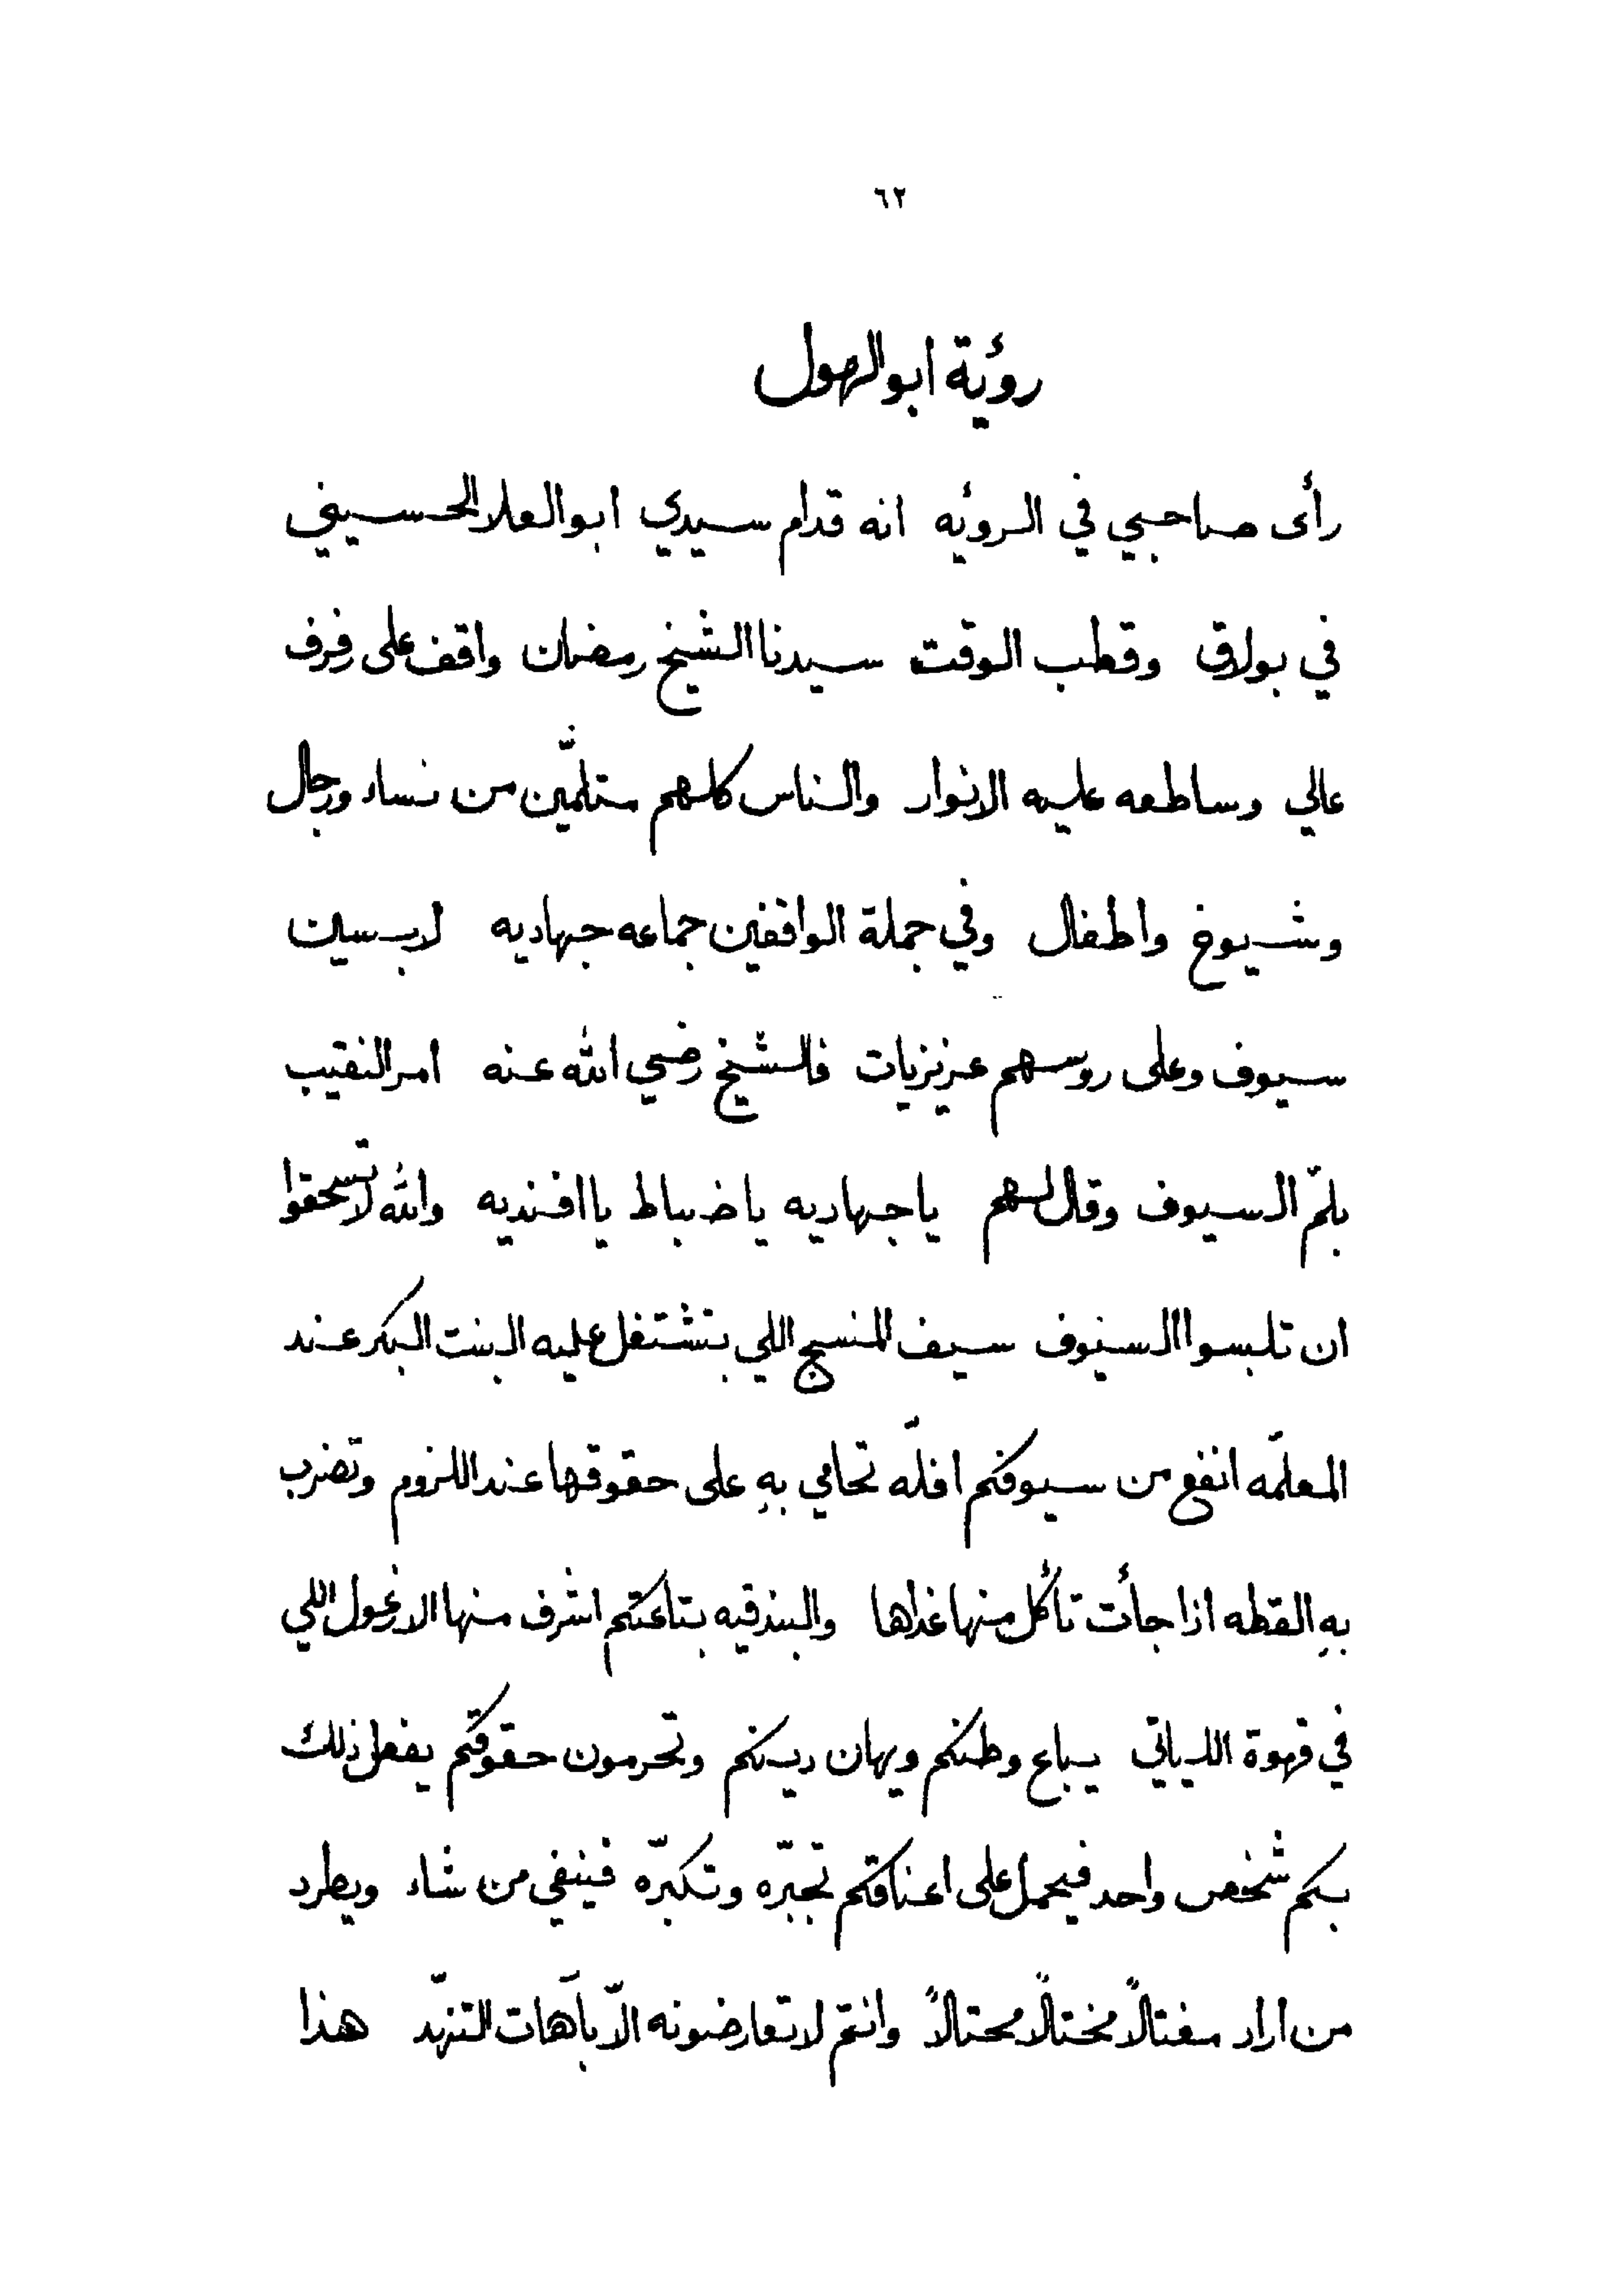 ٦٢
رؤية ابوالهول
رأى صاحبي في الرؤيه انه قدام سيدي ابوالعلا الحسيني
في بولاق وقطب الوقت سيدنا الشيخ رمضان واقف على رفرف
عالي وساطعه عليه الانوار والناس كلهم متلمّين من نساء ورجال
وشيوخ واطفال وفي جملة الواقفين جماعه جهاديه لابسين
سيوف وعلى روسهم عزيزيات فالشيخ رضي الله عنه امر النقيب
بلمّ السيوف وقال لهم ياجهاديه ياضباط ياافنديه والله لاتستحقوا
ان تلبسوا السيوف سيف المنسج اللي بتشتغل عليه البنت البكر عند
المعلمّه انفع من سيوفكم اقلّه تحامي بهِ على حقوقها عند اللزوم وتضرب
بهِ القطه اذا جأت تأكل منها غداها والبندقيه بتاعتكم اشرف منها الارغول اللي
في قهوة اللهاتي يباع وطنكم ويهان دينكم وتحرمون حقوقكم يفعل ذلك
بكم شخص واحد فيحمل على اعناقكم تجبّره وتكبّره فينفي من شاء ويطرد
من اراد مغتالاً مختالاً محتالاً وانتم لاتعارضونه الاّ بآهات التنهّد هذا